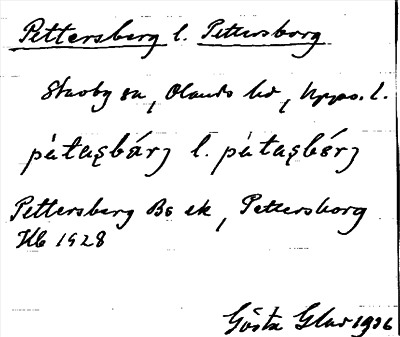 Pettersberg l. Pettersborg
Skuoby sn, Olands hd, Upps. l.
pä̀taṣbárj l. pä̀taṣbórj
Pettersberg Bs ek, Pettersborg
Hb 1928
Gösta 1936